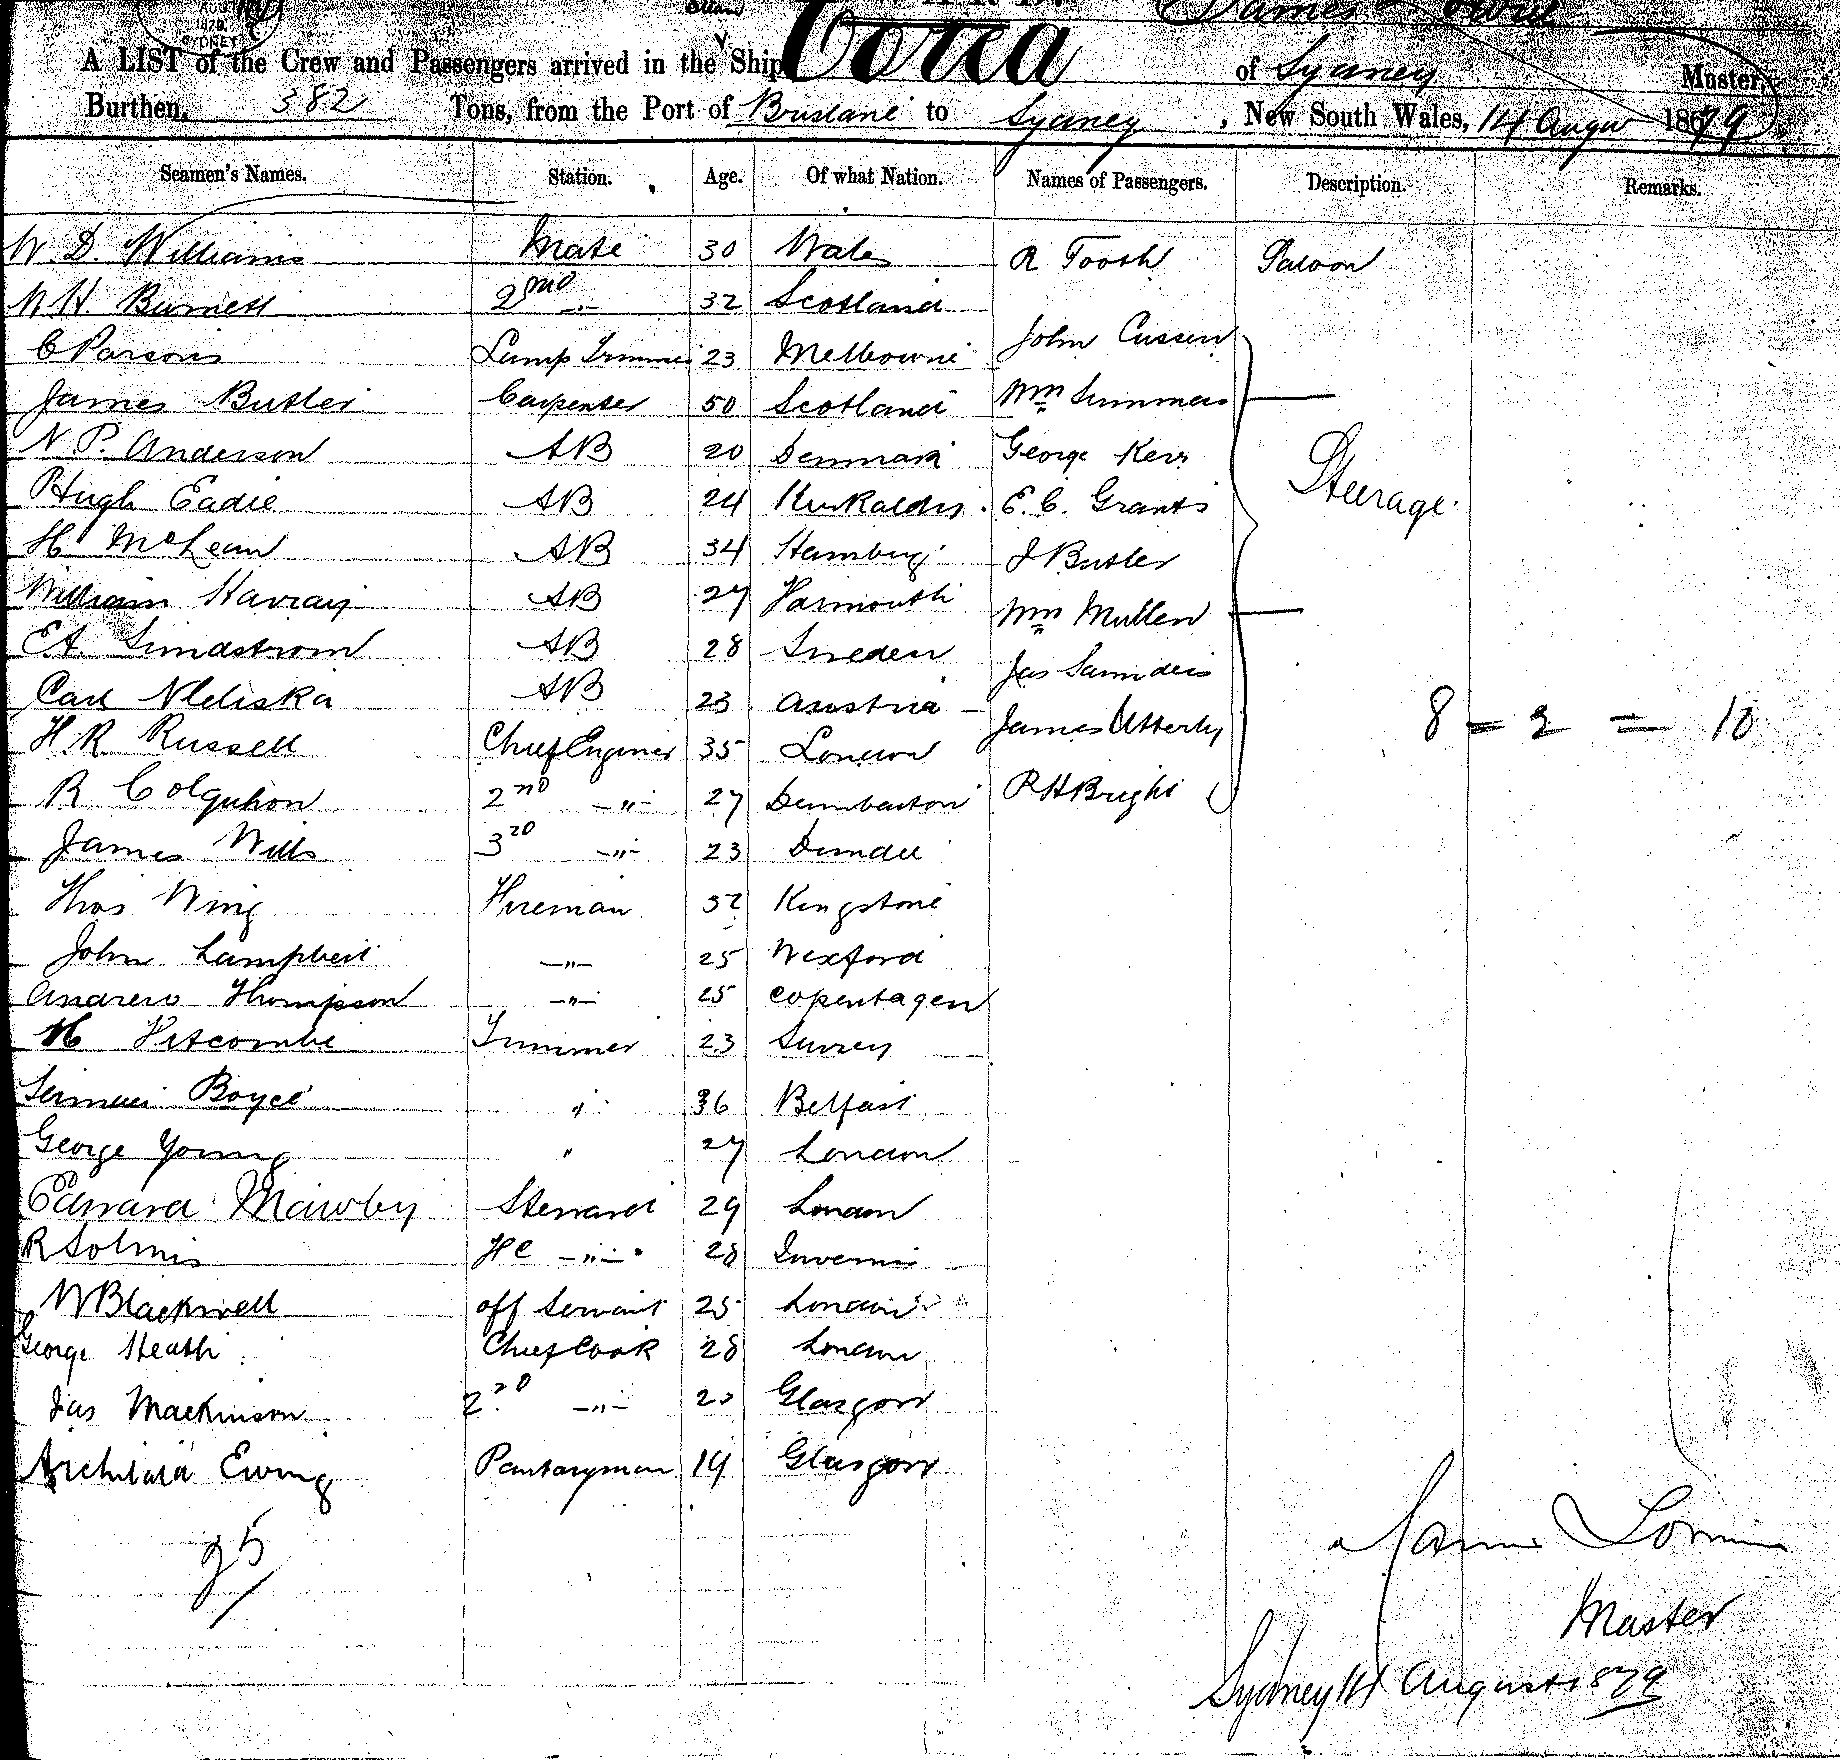 AUG
1879
SYDNEY
Steam
James
A LIST of the Crew and Passengers arrived in the Ship of Sydney Master,
Burthen, 382 Tons, from the Port of Brisbane to Sydney, New South Wales, 14 Augus 1879
Seamen's Names. Station. Age. Of what Nation. Names of Passengers. Description. Remarks.
W. D. Williams Mate 30 Wales R Tooth Saloon
W H. Burnett 2nd -"- 32 Scotland
C Parsons Lamp Trimmer 23 Melbourne John Cussen
James Butler Carpenter 50 Scotland Wm Summers
N. P. Anderson AB 20 Denmark George Kerr
Hugh Eadie AB 24 Kirkaldy E. C. Grants Steerage
H McLean AB 34 Hamburg J Butler
William Harray AB 27 Yarmouth Wm Mullen
E A. Lindstrom AB 28 Sweden Jas Saunders
Carl AB 23 Austria James Utterby 8 = 2 = 10
H R Russell Chief Engineer 35 London
R Colquhon 2nd -"- 27 Dumbarton R H Bright
James Wills 3rd -"- 23 Dundee
Thos Wing Fireman 32 Kingstone
John Lampbert -"- 25 Wexford
Andrew Thompson -"- 25 Copenhagen
H Hitcombe Trimmer 23 Surrey
Samuel Boyce " 36 Belfast
George Young " 27 London
Edward Mawby Steward 29 London
R FC -"- 28 Inverness
W Blackwell Off Servant 25 London
George Heath Chief Cook 28 London
Jas Mackinson 2nd -"- 23 Glasgow
Archibald Ewing Pantryman 19 Glasgow
25
James
Master
Sydney 14 August 1879